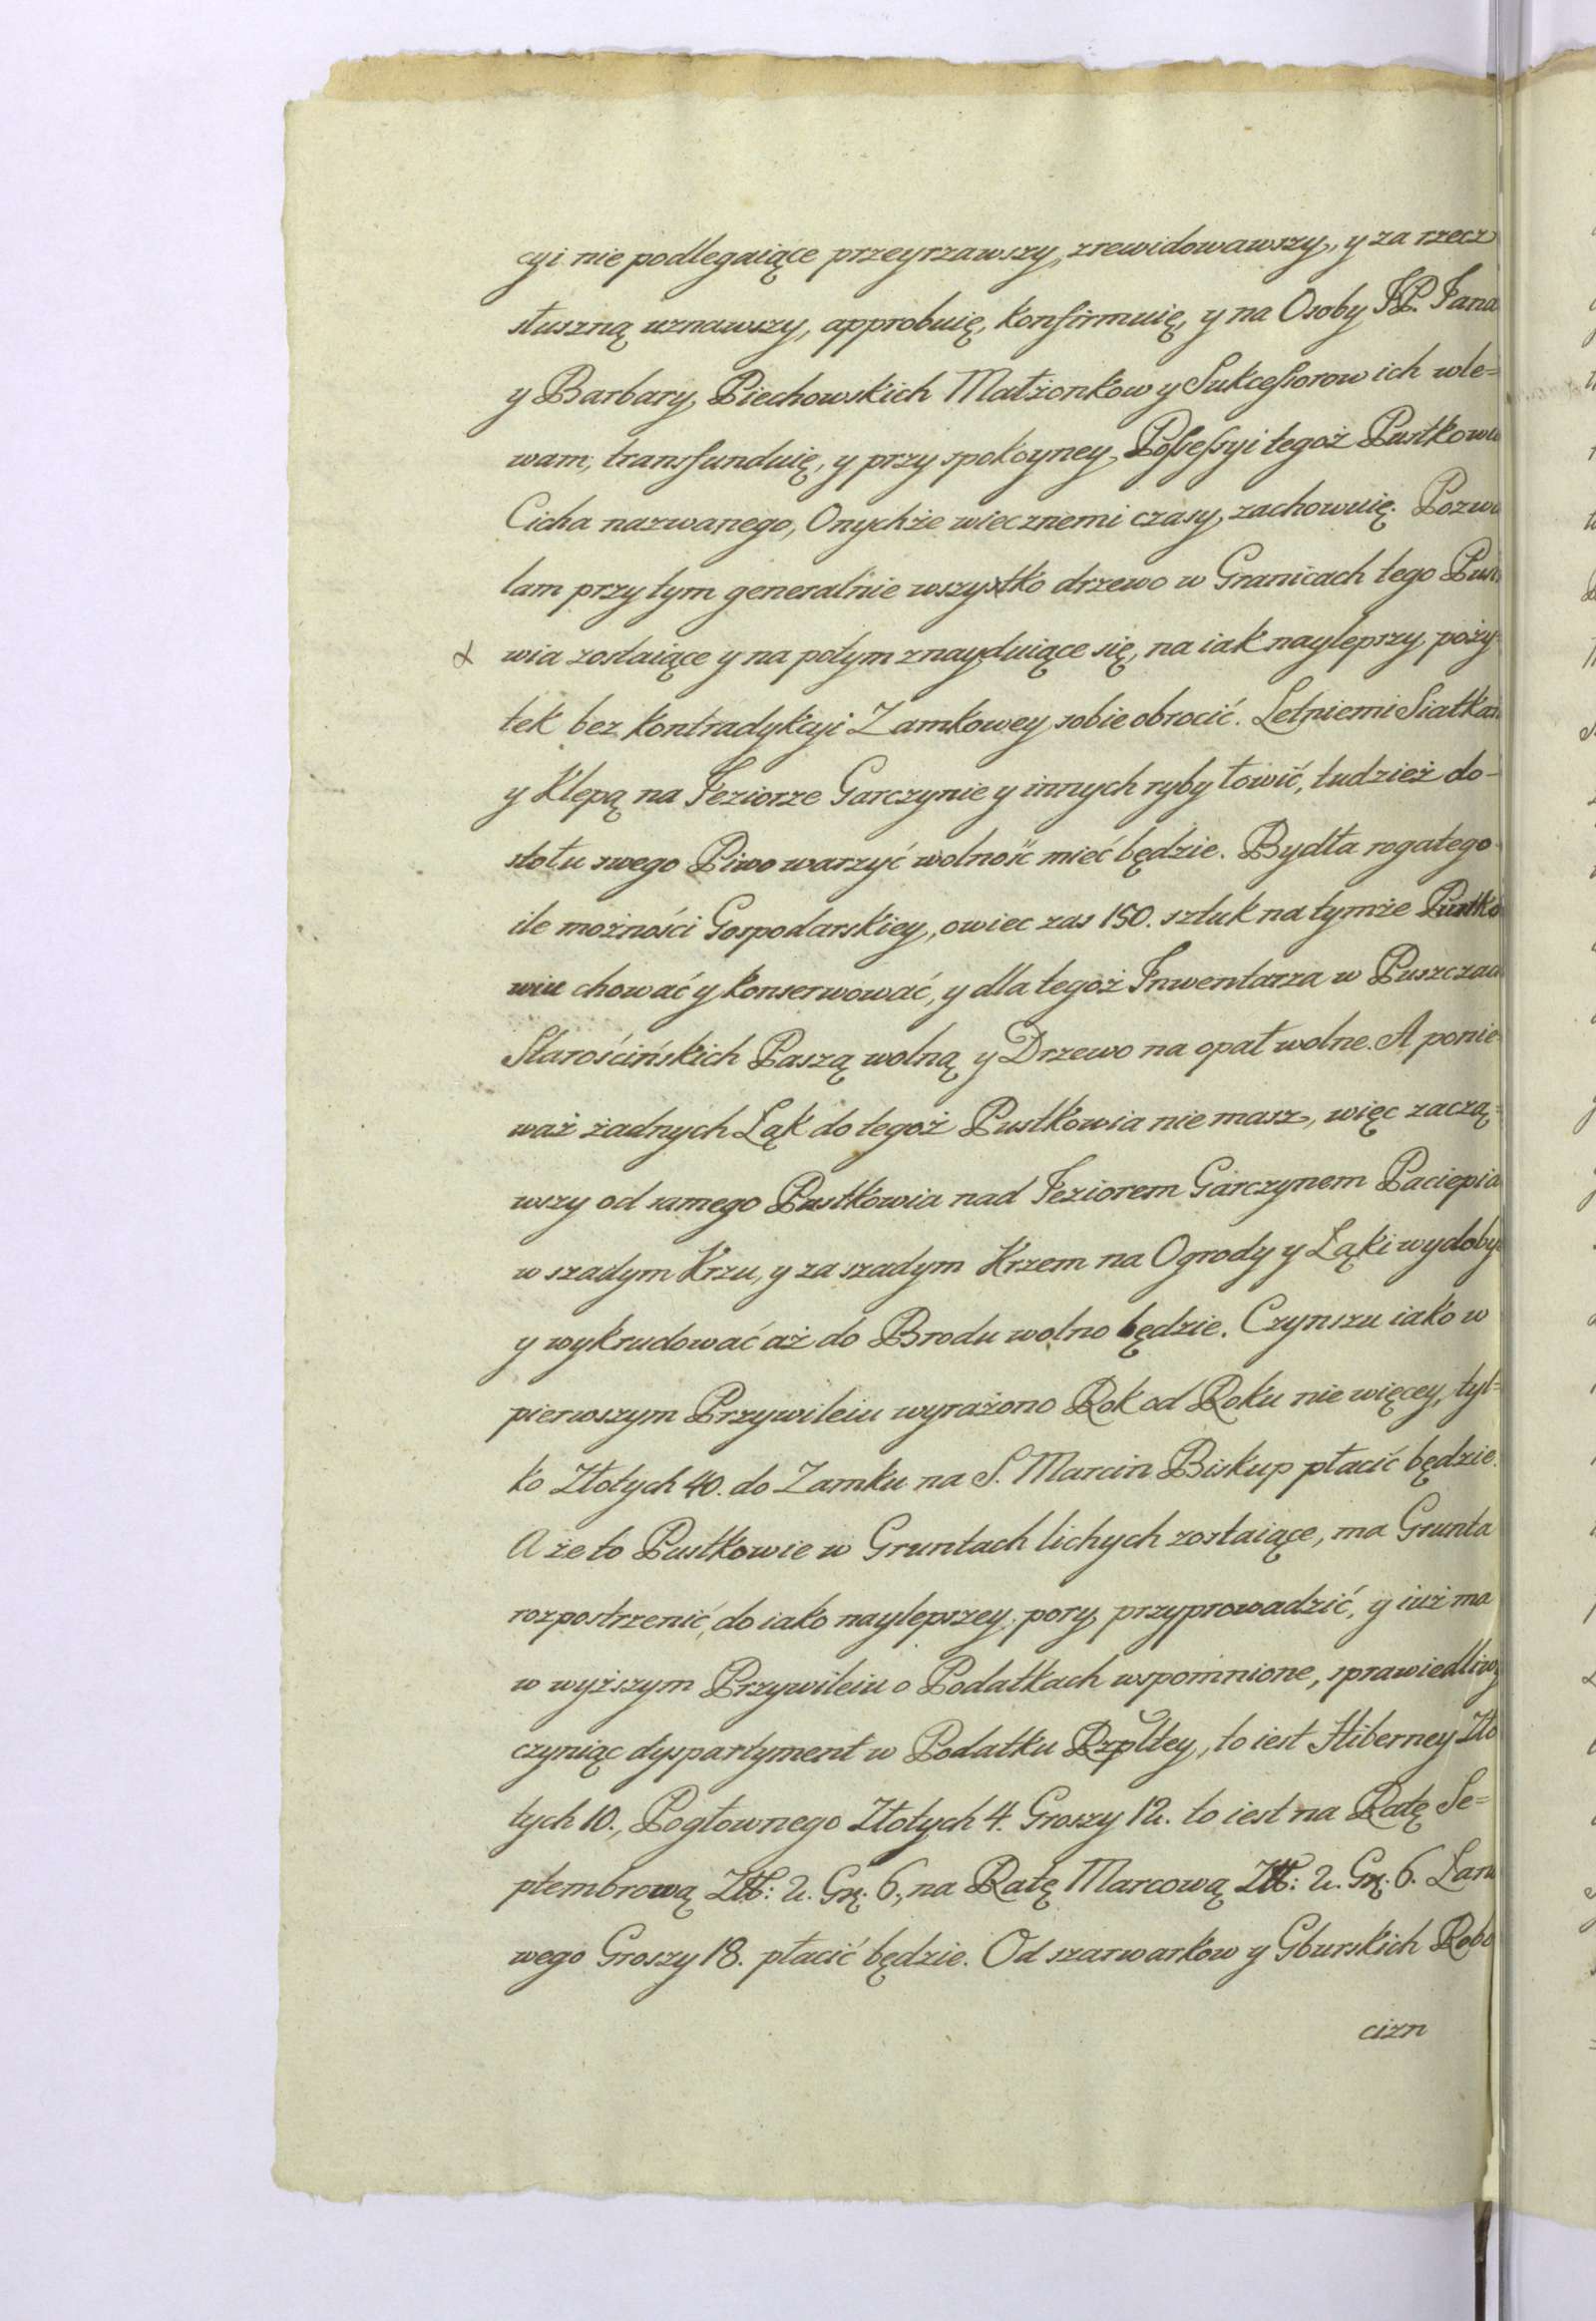 cyi nie podlegaiące przeyrzawszy, zrewidowawszy, y za rzecz
słuszną uznawszy, approbuię, konfirmuię, y na Osoby JP. Jana
y Barbary Piechowskich Małżonkow y Sukceſsorow ich wle=
wam, transfunduię, y przy spokoyney Poſseſsyi tegoż Pustkowu
Cicha nazwanego, Onychże wiecznemi czasy, zachowuię. Pozwo
lam przy tym generalnie wszystko drzewo w Granicach tego Pust
wia zostaiące y na potym znayduiące się, na iak naylepszy poży=
tek bez kontradykcyi Zamkowey sobie obrocić. Letniemi Siatkam
y Klepą na Jeziorze Garczynie y innych ryby łowić, tudzież do=
stołu swego Piwo warzyć wolność mieć będzie. Bydła rogatego
ile możności Gospodarskiey, owiec zas 150. sztuk na tymże Pustko
wiu chować y konserwować, y dla tegoż Jnwentarza w Puszczach
Starościńskich Paszą wolną y Drzewo na opał wolne. A ponie
waż żadnych Łąk do tegoż Pustkowia nie masz, więc zaczą=
wszy od samego Pustkowia nad Jeziorem Garczynem Paciepia
w szadym Krzu, y za szadym Krzem na Ogrody y Łąki wydoby
y wykrudować aż do Brodu wolno będzie. Czynszu iako w
pierwszym Przywileiu wyrażono Rok od Roku nie więcey, tyl=
ko Złotych 40. do Zamku na S. Marcin Biskup płacić będzie.
A że to Pustkowie w Gruntach lichych zostaiące, ma Grunta
rozpostrzenić, do iako naylepszey pory przyprowadzić, y iuż ma
w wyższym Przywileiu o Podatkach wspomnione, sprawiedliwy
czyniąc dyspartyment w Podatku Rzpltey, to iest Hiberney Zło
tych 10., Pogłownego Złotych 4. Groszy 12. to iest na Ratę Se=
ptembrową Złł: 2. Gr. 6., na Ratę Marcową Złł: 2. Gr. 6. Łano
wego Groszy 18. płacić będzie. Od szarwarkow y Gburskich Robo
cizn